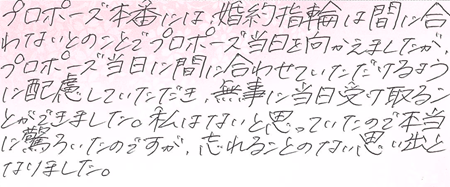 プロポーズ本番には、婚約指輪は間に合
わないとのことでプロポーズ当日を向かえましたが、
プロポーズ当日に間に合わせていただけるよう
に配慮していただき、無事に当日受け取るこ
とができました。私はないと思っていたので本当
に驚ろいたのですが、忘れることのない思い出と
なりました。